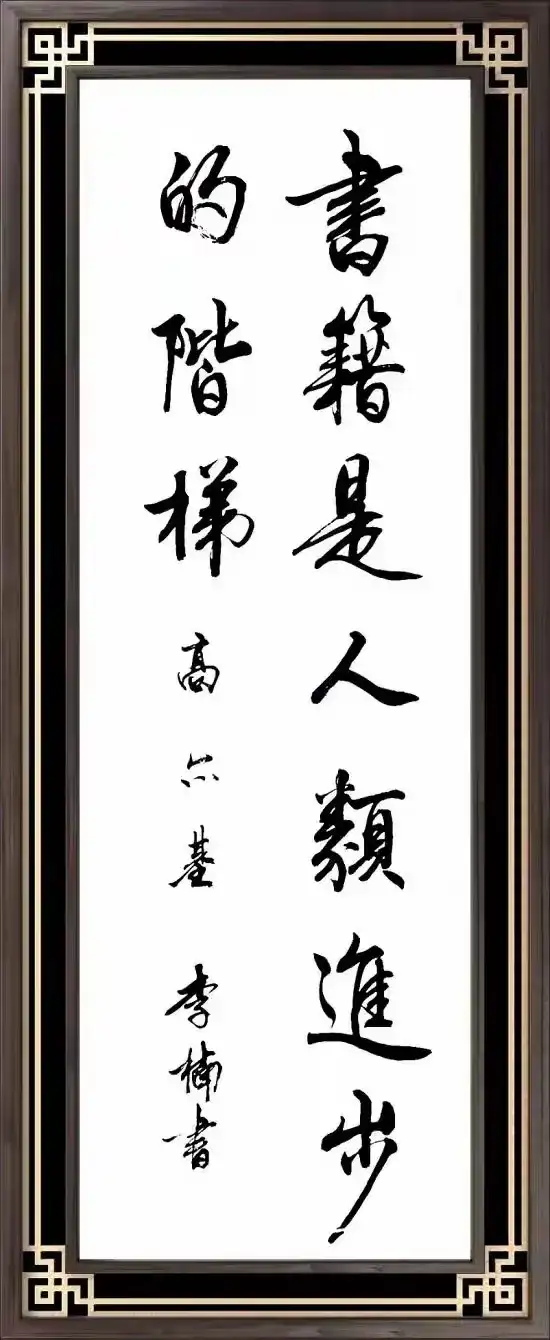 書籍是人類進步
的階梯 高尔基 李楠書